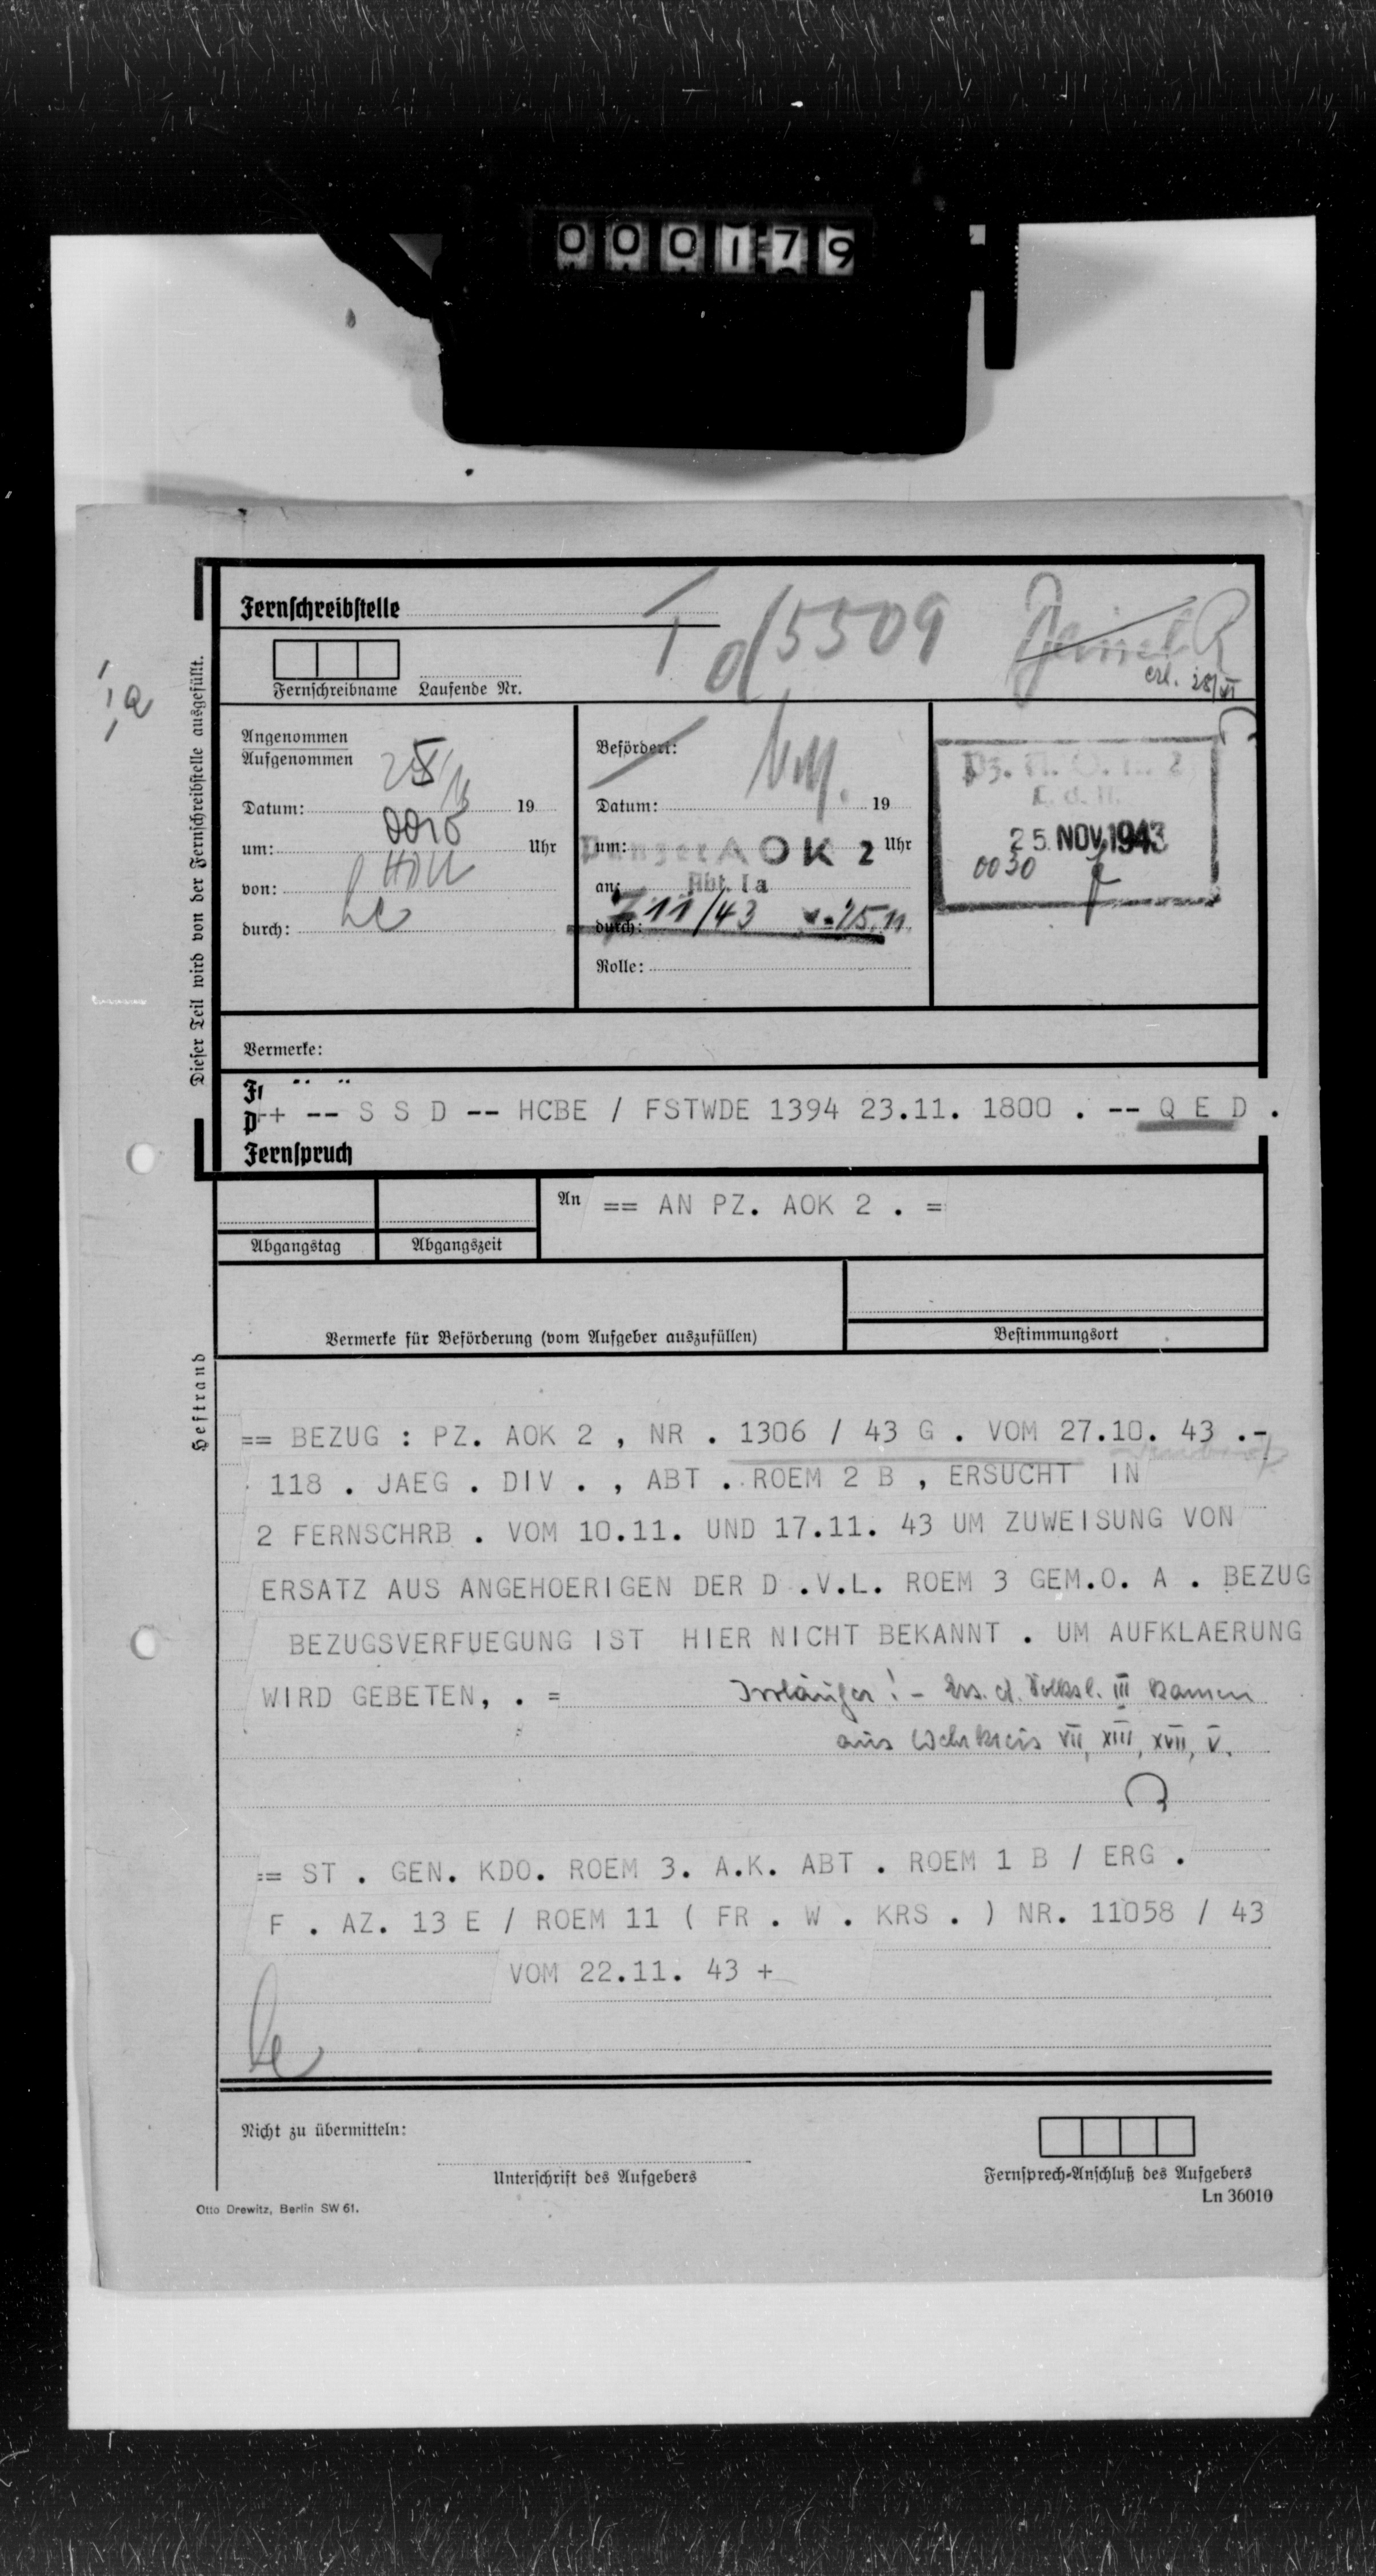 000179
Fernschreibstelle
T d/5509
erl. 28/XI
Fernschreibname Laufende Nr.
Dieser Teil wird von der Fernschreibstelle ausgefüllt.
Angenommen
Aufgenommen
25/11
Datum: 19
um: 0010 Uhr
von:
durch:
Befördert:
Datum: 19
um: Uhr
Panzer AOK 2
an:
Abt. Ia
durch:
11/43 25.11.
Rolle:
Pz. A. O. K. 2
25. NOV. 1943
0030
Vermerke:
++ -- S S D -- HCBE / FSTWDE 1394 23.11. 1800 . -- Q E D .
Fernspruch
An == AN PZ. AOK 2 . =
Abgangstag Abgangszeit
Vermerke für Beförderung (vom Aufgeber auszufüllen)
Bestimmungsort
Heftrand
== BEZUG : PZ. AOK 2 , NR . 1306 / 43 G . VOM 27.10. 43 .-
118 . JAEG . DIV . , ABT . ROEM 2 B , ERSUCHT IN
2 FERNSCHRB . VOM 10.11. UND 17.11. 43 UM ZUWEISUNG VON
ERSATZ AUS ANGEHOERIGEN DER D .V.L. ROEM 3 GEM.O. A . BEZUG
BEZUGSVERFUEGUNG IST HIER NICHT BEKANNT . UM AUFKLAERUNG
WIRD GEBETEN, . =
Irrläufer! - Ers. d. Volksl. III kamen
aus Wehrkreis VII, XIII, XVII, V.
== ST . GEN. KDO. ROEM 3. A.K. ABT . ROEM 1 B / ERG .
F . AZ. 13 E / ROEM 11 ( FR . W . KRS . ) NR. 11058 / 43
VOM 22.11. 43 +
Nicht zu übermitteln:
Unterschrift des Aufgebers
Fernsprech-Anschluß des Aufgebers
Ln 36010
Otto Drewitz, Berlin SW 61.